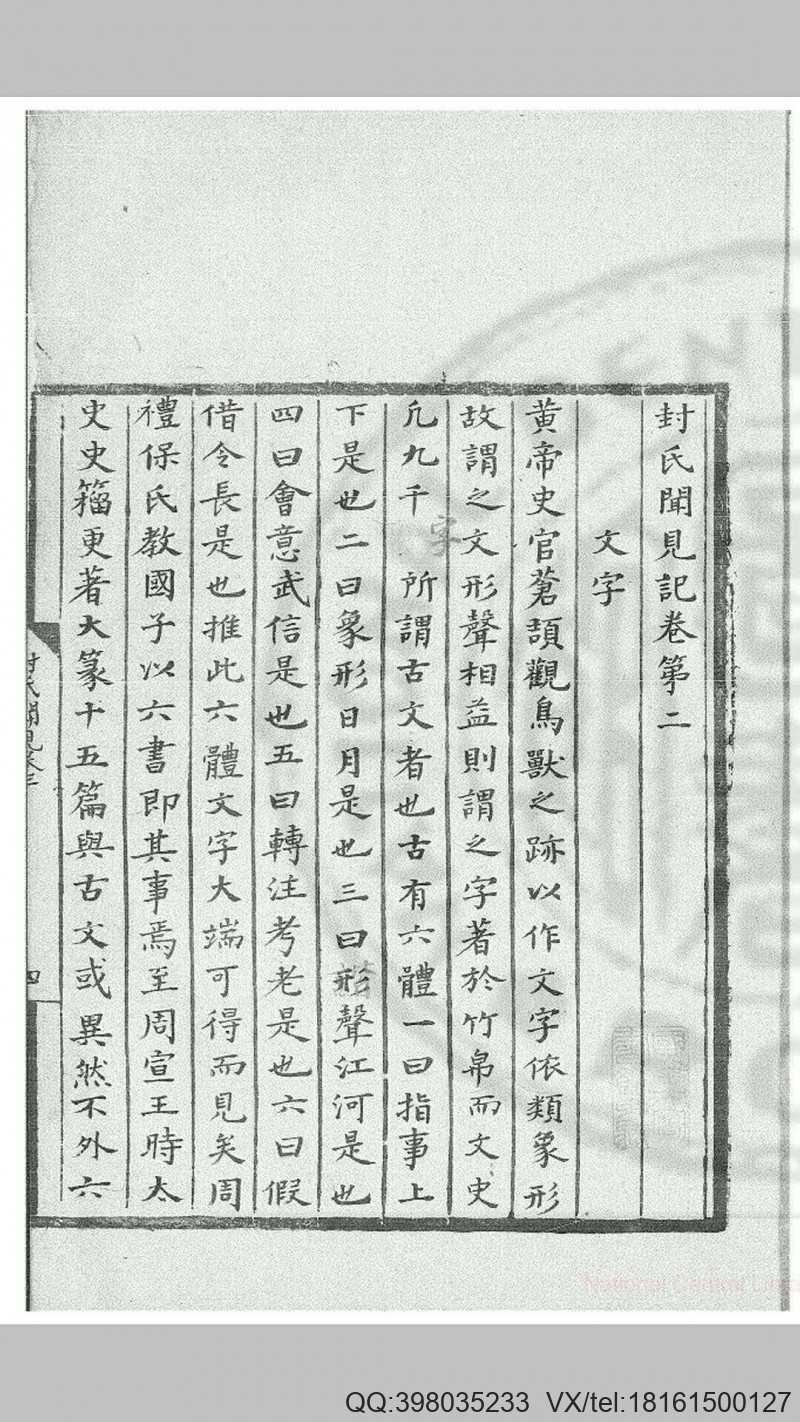 封氏聞見記卷第二
文字
黄帝史官蒼頡觀鳥獸之跡以作文字依類象形
故謂之文形聲相益則謂之字著於竹帛而文史
凢九千字所謂古文者也古有六體一曰指事上
下是也二曰象形日月是也三曰形聲江河是也
四曰會意武信是也五曰轉注考老是也六曰假
借令長是也推此六體文字大端可得而見矣周
禮保氏教國子以六書即其事焉至周宣王時太
史史籕更著大篆十五篇與古文或異然不外六
四
National Central Library
QQ:398035233 VX/tel:18161500127